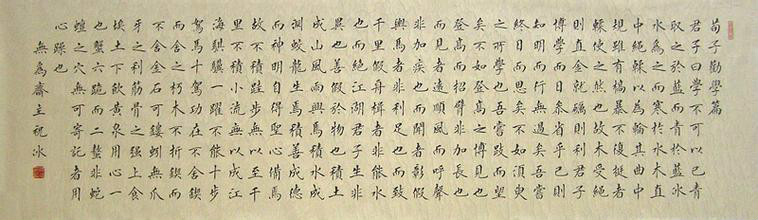 荀子勸學篇
君子曰學不可以已青
取之於藍而青於藍冰
水為之而寒於水木直
中繩輮以為輪其曲中
規雖有槁暴不復挺者
輮使之然也故木受繩
則直金就礪則利君子
博學而日參省乎己則
知明而行無過矣吾嘗
終日而思矣不如須臾
之所學也吾嘗跂而望
矣不如登高之博見也
登高而招臂非加長也
而見者遠順風而呼聲
非加疾也而聞者彰假
輿馬者非利足也而致
千里假舟楫者非能水
也而絕江河君子生非
異也善假於物也積土
成山風雨興焉積水成
淵蛟龍生焉積善成德
而神明自得聖心備焉
故不積跬步無以至千
里不積小流無以成江
海騏驥一躍不能十步
駑馬十駕功在不舍鍥
而舍之朽木不折鍥而
不舍金石可鏤蚓無爪
牙之利筋骨之強上食
埃土下飲黃泉用心一
也蟹六跪而二螯非蛇
蟺之穴無可寄託者用
心躁也
無為齋主祝冰